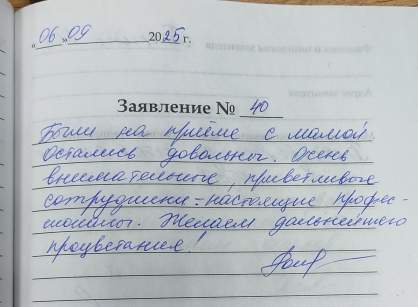 "06" 09 2025 г.
Заявление № 40
Были на приёме с мамой.
Остались довольны. Очень
внимательные, приветливые
сотрудники - настоящие профес-
сионалы. Желаем дальнейшего
процветания!